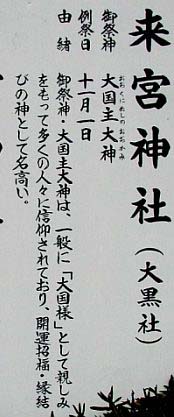 来宮神社(大黒社)
御祭神 大国主大神
おおくにぬしのおおかみ
例祭日 十一月一日
由緒
御祭神・大国主大神は、一般に「大国様」として親しみ
をもって多くの人々に信仰されており、開運招福・縁結
びの神として名高い。